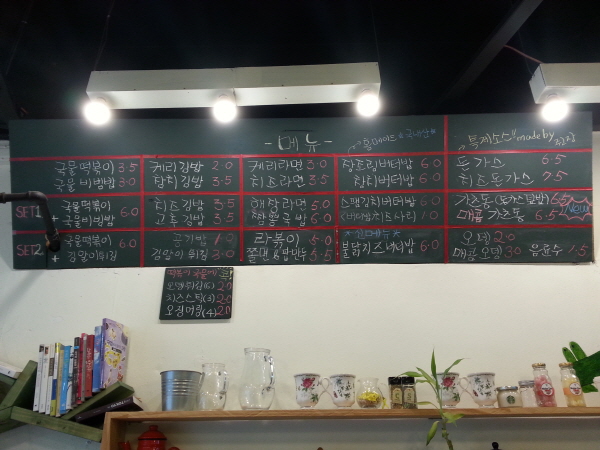 - 메뉴 -
국물떡볶이 3.5
국물비빔밥 3.0
SET1
국물떡볶이
국물비빔밥 6.0
SET2
국물떡볶이 6.0
+ 김말이튀김
케리김밥 2.0
참치김밥 3.5
치즈김밥 3.5
고추김밥 3.5
공기밥 1.0
김말이 튀김 3.0
케리라면 3.0
치즈라면 3.5
해장라면 5.0
짬뽕국밥 5.0
라볶이 5.0
쫄면 & 밥만두 5.5
홈메이드 & 국내산
장조림버터밥 6.0
참치버터밥 6.0
스팸김치버터밥 6.0
치즈사리 1.0
불닭치즈 6.0
특제소스 "made by
돈가스 6.5
치즈돈가스 7.5
가츠동 (돈가스덮밥) 6.5
매콤가츠동 6.5
New
오뎅 2.0
매콤오뎅 3.0
음료수 1.5
치즈스틱(3) 2.0
오징어링(4) 2.0